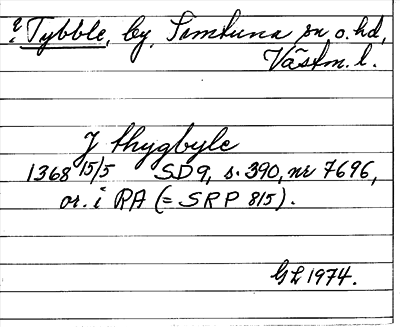 ? Tybble, by, Simtuna sn o. hd,
Västm. l.
J thygbyle
1368 15/5 SD9, s. 390, nr 7696,
or. i RA (= SRP 815).
GL 1974.